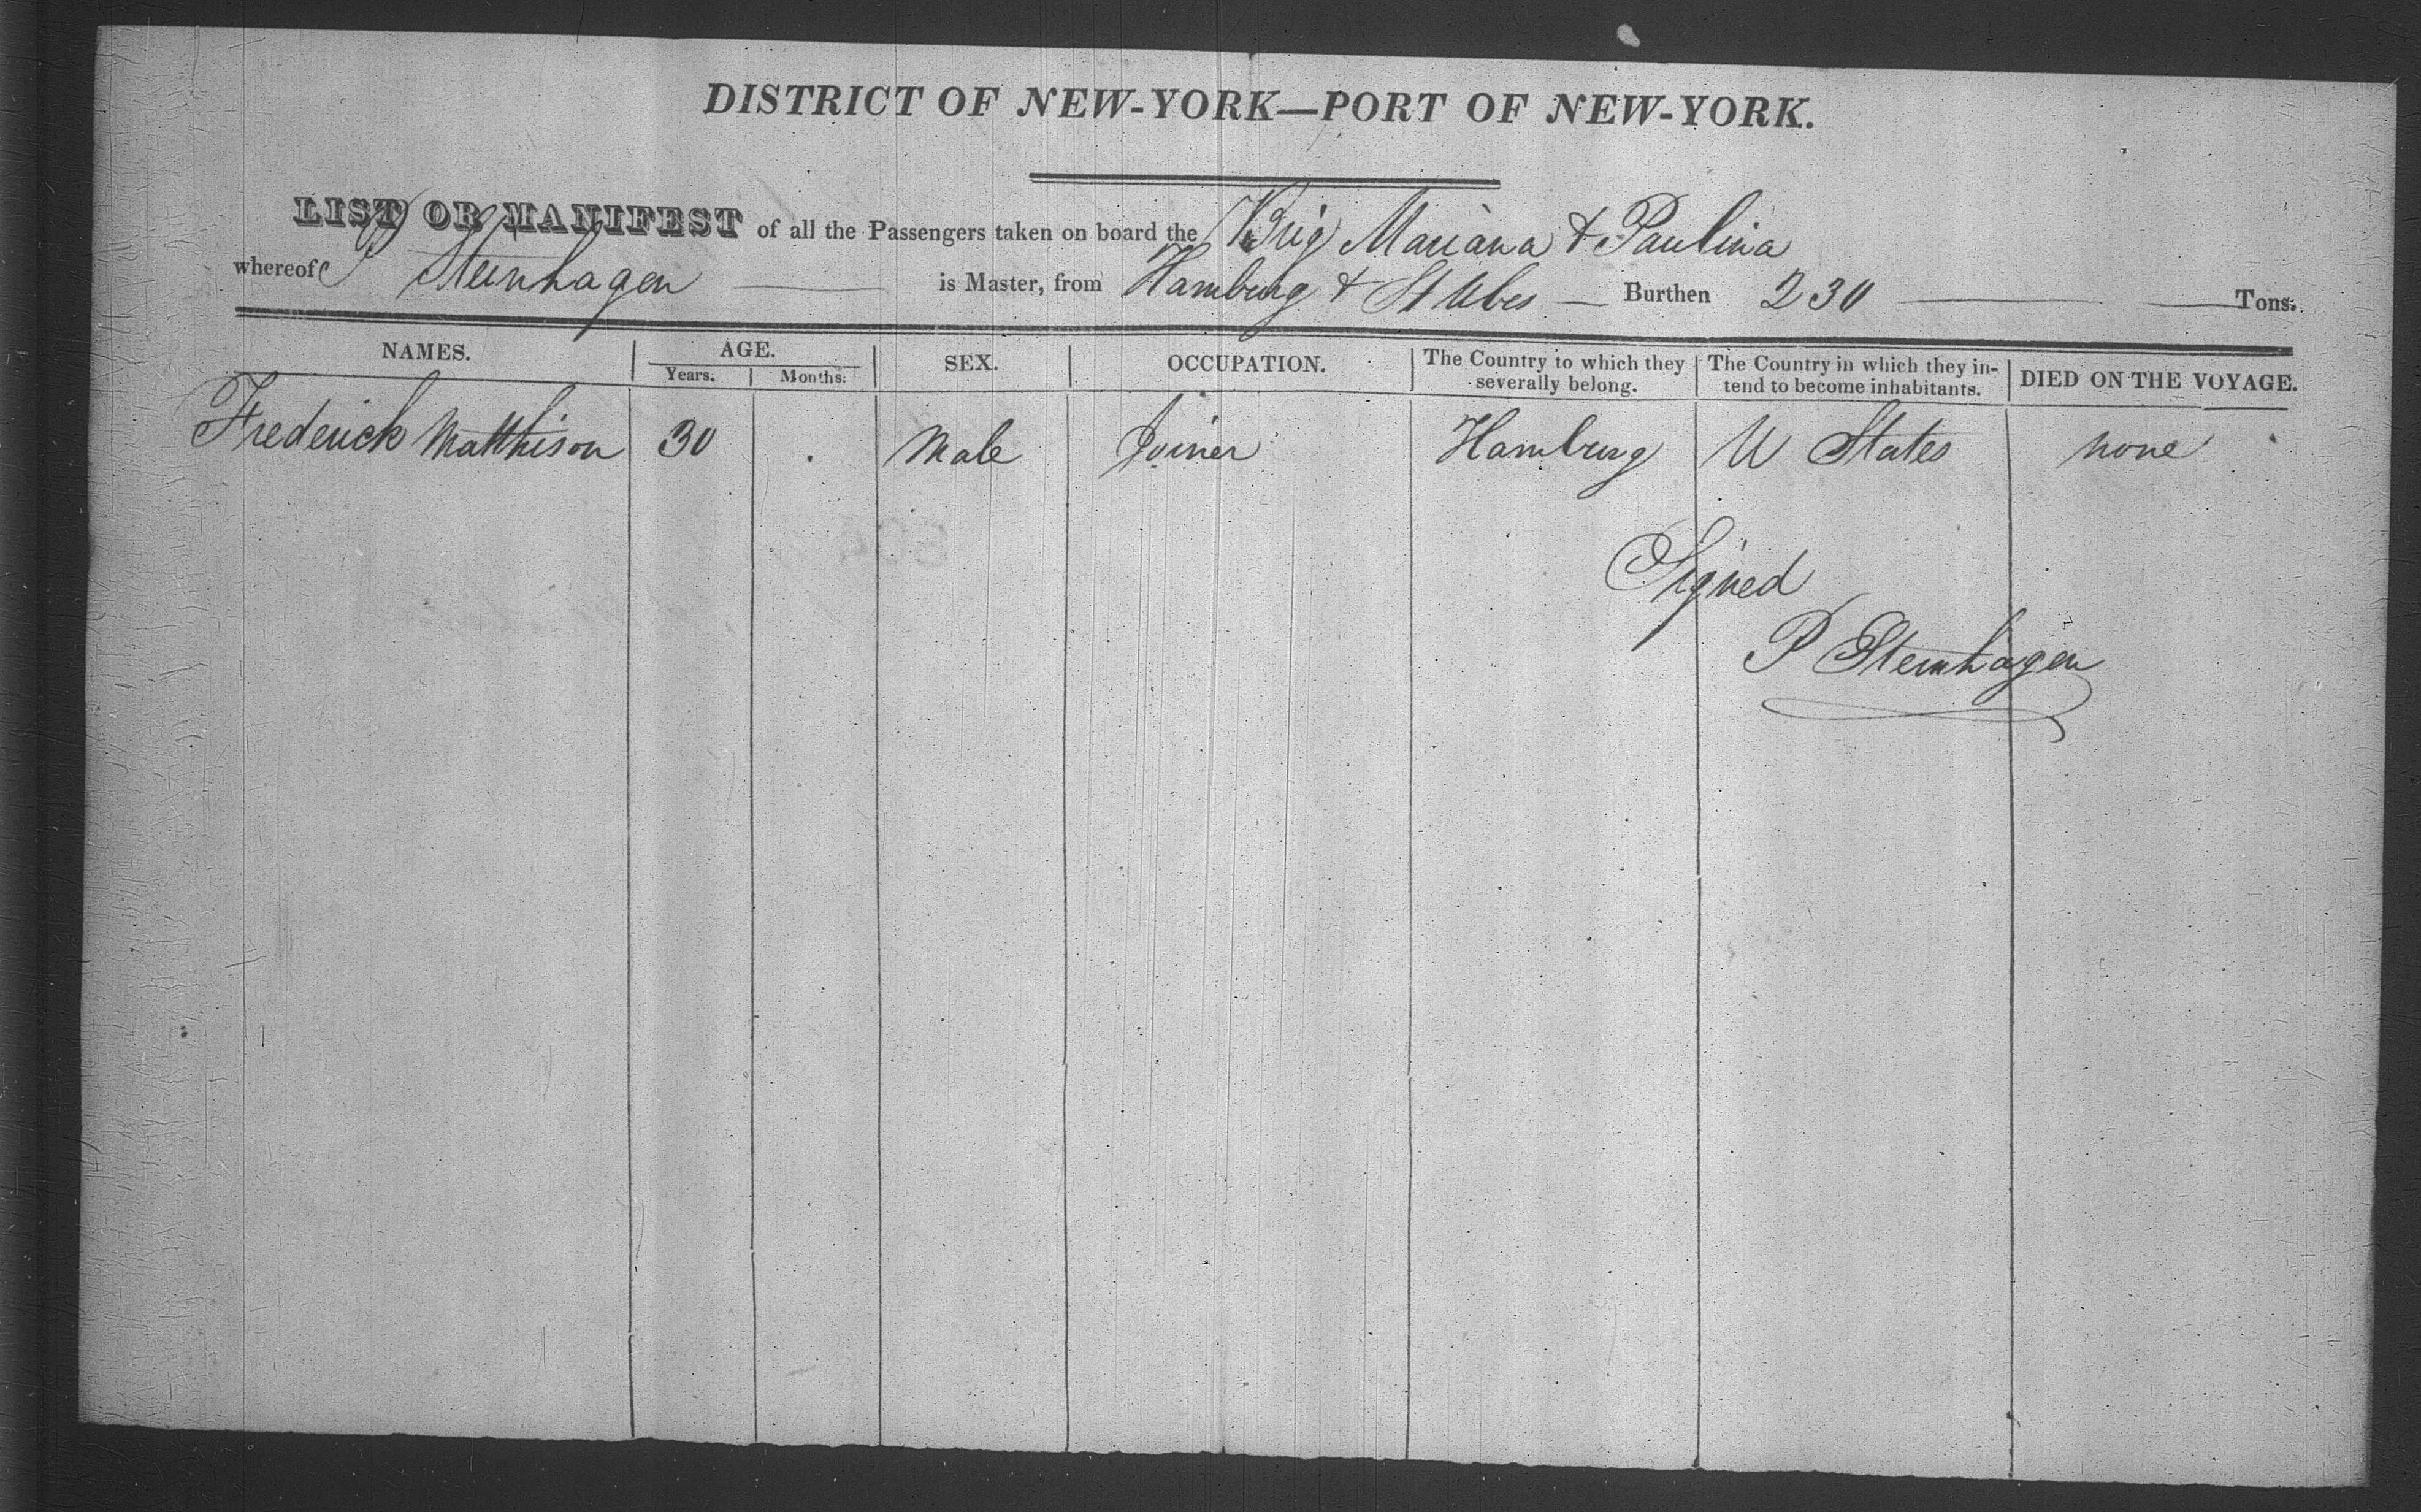 DISTRICT OF NEW-YORK—PORT OF NEW-YORK.
LIST OR MANIFEST of all the Passengers taken on board the Brig Mariana & Paulina
whereof P Steinhagen is Master, from Hamburg & St Ubes — Burthen 230 Tons.
NAMES. AGE. SEX. OCCUPATION. The Country to which they severally belong. The Country in which they intend to become inhabitants. DIED ON THE VOYAGE.
Years. Months.
Frederick Matthison 30 . Male Joiner Hamburg U States none
Signed
P Steinhagen